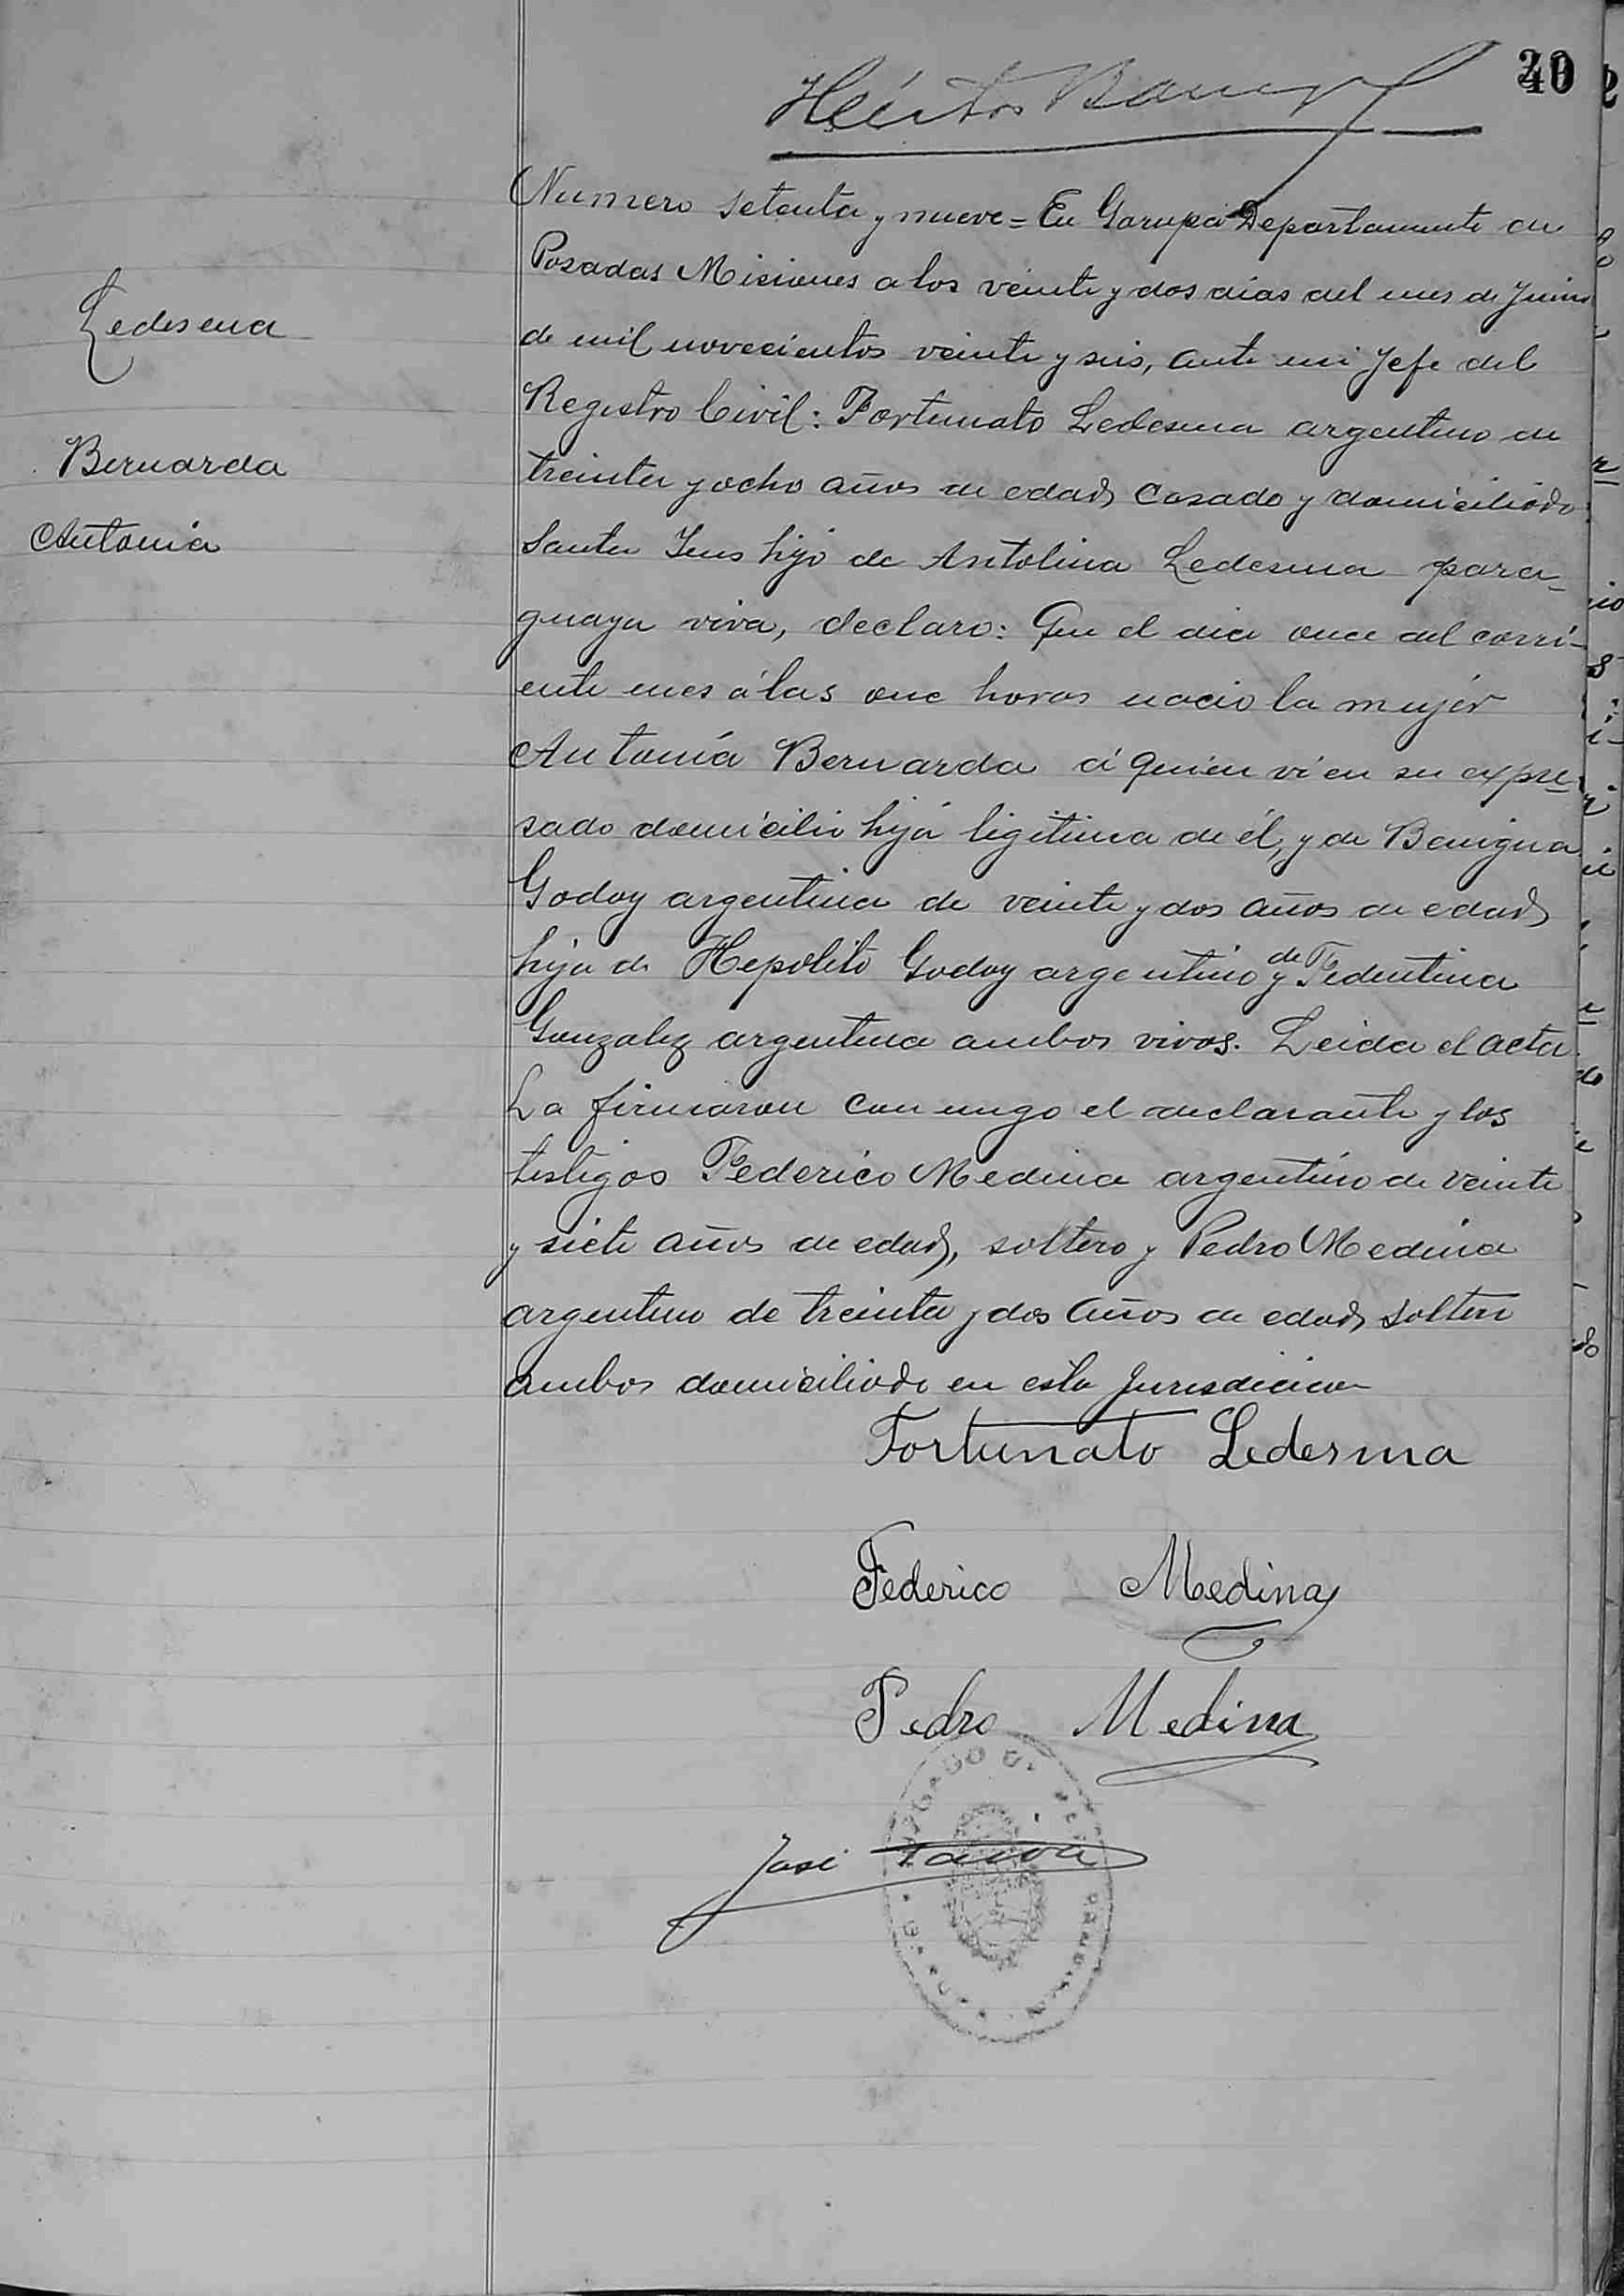 40
Numero setenta y nueve = En Garupá Departamento de
Posadas Misiones a los veinte y dos dias del mes de Junio
Ledesma
de mil novecientos veinte y seis, ante mi Jefe del
Registro Civil: Fortunato Ledesma argentino de
Bernarda
treinta y ocho años de edad, casado y domiciliado
Antonia
Santa Ines hijo de Antolina Ledesma para-
guaya viva, declaro: Que el dia once del corri-
ente mes á las once horas nacio la mujer
Antonia Bernarda á quien vi en su expre-
sado domicilio hija ligitima de él, y de Benigna
Godoy argentina de veinte y dos años de edad
hija de Hepolito Godoy argentino y de Fedentina
Gonzalez argentina ambos vivos. Leida el acta
La firmaron con migo el declarante y los
testigos Federico Medina argentino de veinte
y siete años de edad, soltero y Pedro Medina
argentino de treinta y dos años de edad, soltero
ambos domiciliado en esta Jurisdicion
Fortunato Ledesma
Federico Medina
Pedro Medina
José